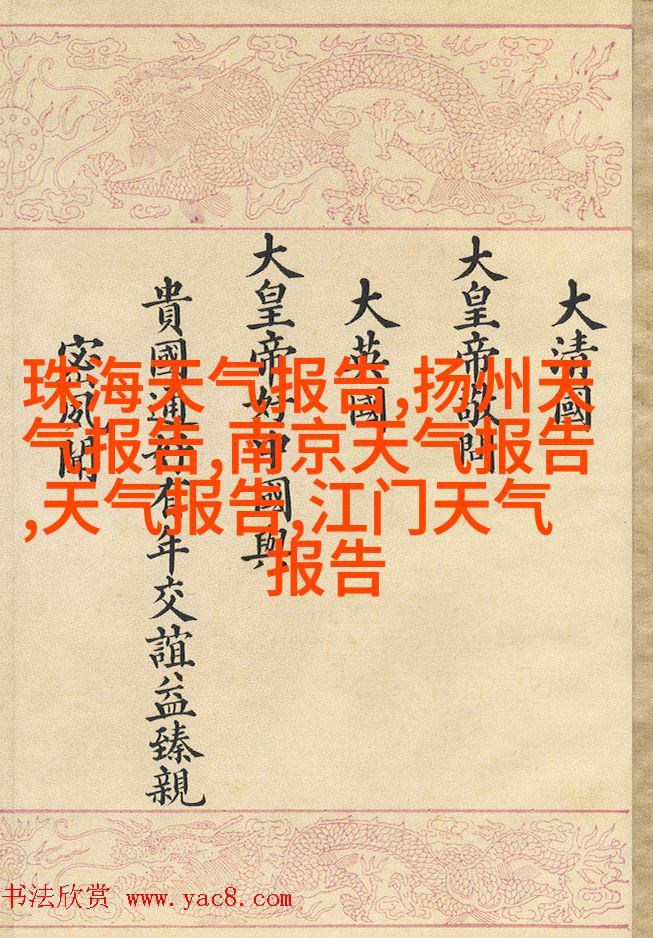 大清國
大皇帝敬問
大英國
大皇帝好中國與
貴國通好有年交誼益臻親
密夙聞
珠海天气报告,扬州天
气报告,南京天气报告
,天气报告,江门天气
报告
书法欣赏 www.yac8.com